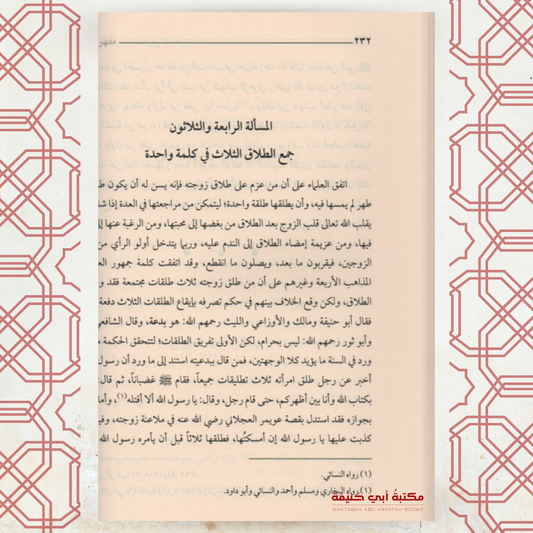 ٢٣٢
المسألة الرابعة والثلاثون
جمع الطلاق الثلاث في كلمة واحدة
اتفق العلماء على أن من عزم على طلاق زوجته فإنه يسن له أن يكون
طهر لم يمسها فيه، وأن يطلقها طلقة واحدة؛ ليتمكن من مراجعتها في العدة إذا
يقلب الله تعالى قلب الزوج بعد الطلاق من بغضها إلى محبتها، ومن الرغبة عنها
فيها، ومن عزيمة إمضاء الطلاق إلى الندم عليه، وربما يتدخل أولو الرأي من
الزوجين، فيقربون ما بعد، ويصلون ما انقطع، وقد اتفقت كلمة جمهور
المذاهب الأربعة وغيرهم على أن من طلق زوجته ثلاث طلقات مجتمعة فقد
الطلاق، ولكن وقع الخلاف بينهم في حكم تصرفه بإيقاع الطلقات الثلاث دفعة
فقال أبو حنيفة ومالك والأوزاعي والليث رحمهم الله: هو بدعة، وقال
وأبو ثور رحمهم الله: ليس بحرام، لكن الأولى تفريق الطلقات؛ لتتحقق الحكمة
ورد في السنة ما يؤيد كلا الوجهتين، فمن قال ببدعيته استند إلى ما ورد أن رسول
أخبر عن رجل طلق امرأته ثلاث تطليقات جميعاً، فقام ﷺ غضباناً، ثم قال:
بكتاب الله وأنا بين أظهركم، حتى قام رجل، وقال: يا رسول الله ألا أقتله(١)، وأما
بجوازه فقد استدل بقصة عويمر العجلاني رضي الله عنه في ملاعنة زوجته،
كذبت عليها يا رسول الله إن أمسكتُها، فطلقها ثلاثاً قبل أن يأمره رسول الله
(١) رواه النسائي.
(٢) رواه البخاري ومسلم وأحمد والنسائي وأبو داود.
مكتبة أبي حنيفة
MAKTABAH ABU HANEFAH BOOKS